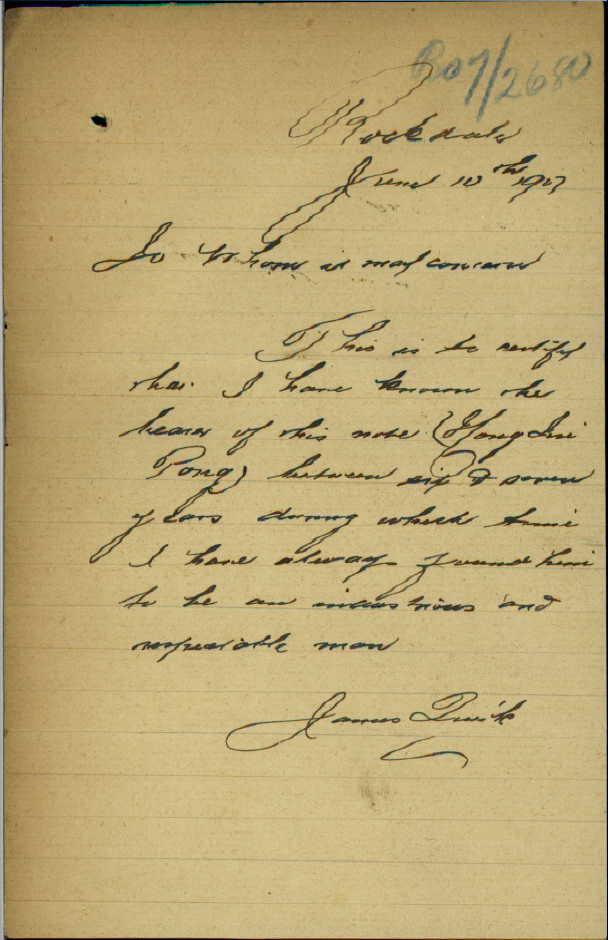 B07/2680
Rockdale
June 10th 1907
To Whom it may concern
This is to certify
that I have known the
bearer of this note (Hong
Pong) between six & seven
years during which time
I have always found him
to be an industrious and
respectable man
James